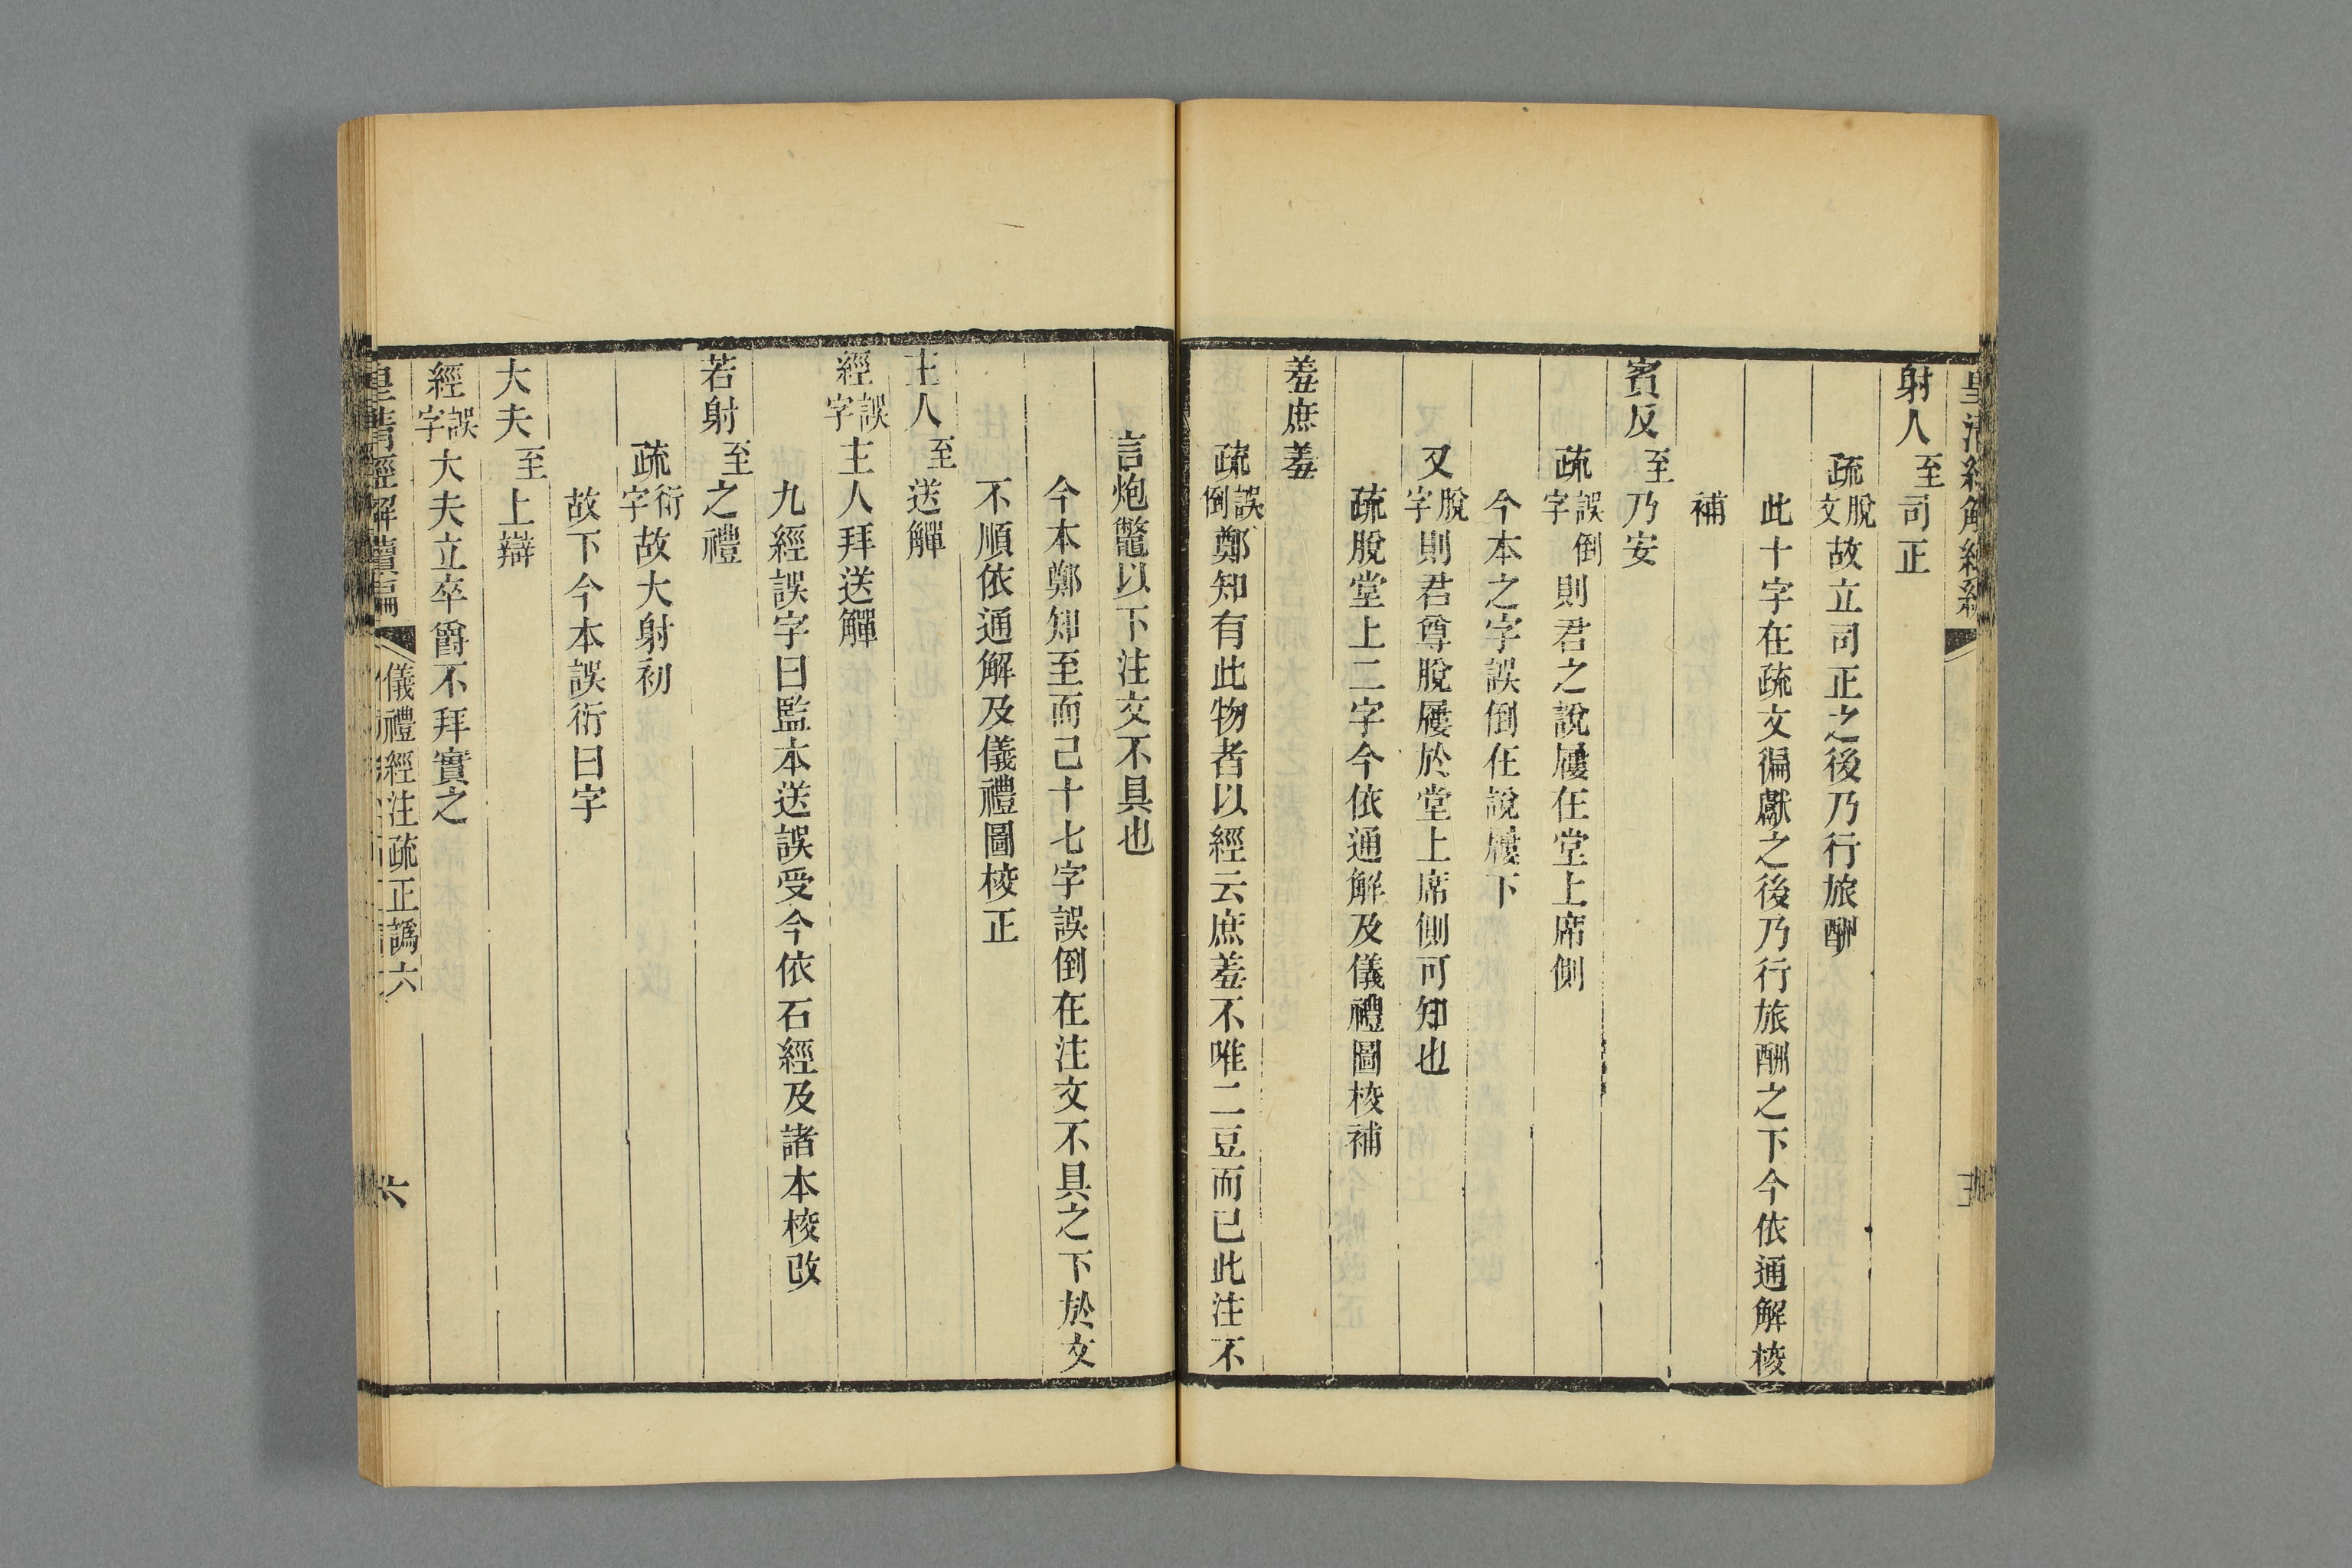 射人至司正
疏脫文故立司正之後乃行旅酬
此十字在疏文徧獻之後乃行旅酬之下今依通解校
補
賓反至乃安
疏誤字倒則君之說屨在堂上席側
今本之字誤倒在說屨下
又脫字則君尊脫屨於堂上席側可知也
疏脫堂上二字今依通解及儀禮圖校補
羞庶羞
疏誤倒鄭知有此物者以經云庶羞不唯二豆而已此注不
言炮鼈以下注文不具也
今本鄭知至而己十七字誤倒在注文不具之下於文
不順依通解及儀禮圖校正
主人至送觶
經誤字主人拜送觶
九經誤字曰監本送誤受今依石經及諸本校改
若射至之禮
疏衍字故大射初
故下今本誤衍曰字
大夫至上辯
經誤字大夫立卒爵不拜實之
皇清經解續編 儀禮經注疏正譌六 六